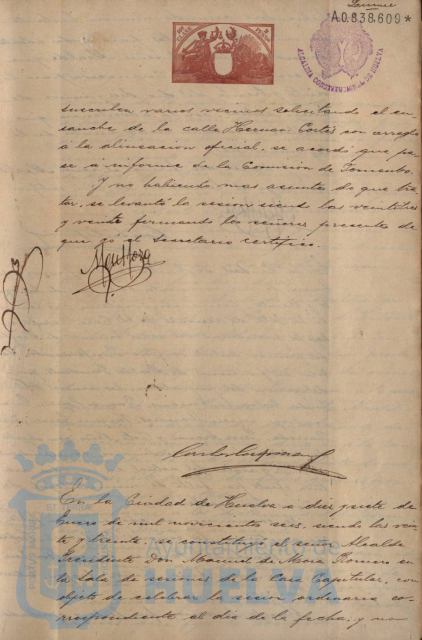 A.0.838.609*
ALCALDIA CONSTITUCIONAL DE HUELVA
suscriben varios vecinos solicitando el en-
sanche de la calle Hernan Cortés con arreglo
á la alineacion oficial, se acordó que pa-
se á informe de la Comision de Fomento.
Y no habiendo mas asuntos de que tra-
tar, se levantó la sesion siendo las veintitres
y veinte firmando los señores presentes de
que yo el Secretario certifico.
En la Ciudad de Huelva a diez y siete de
Enero de mil novecientos seis, siendo las vein-
te y treinta, se constituyó el señor Alcalde
Presidente Don Manuel de Mora Romero en
la Sala de sesiones de la Casa Capitular, con
objeto de celebrar la sesion ordinaria co-
rrespondiente al dia de la fecha; y no
Ayuntamiento de
HUELVA